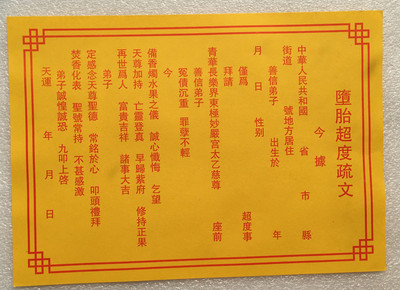 墮胎超度疏文
今據
中華人民共和國 省 市 縣
街道 號地方居住
善信弟子 出生於 年
月 日 性别
僅爲 超度事
拜請
青華長樂界東極妙嚴宮太乙慈尊 座前
善信弟子
冤債沉重 罪孽不輕
今
備香燭水果之儀 誠心懺悔 乞望
天尊加持 亡靈登真 早歸紫府 修持正果
再世爲人 富貴吉祥 諸事大吉
弟子
定感念天尊聖德 常銘於心 叩頭禮拜
焚香化表 聖號常持 不甚感激
弟子誠惶誠恐 九叩上啓
天運 年 月 日